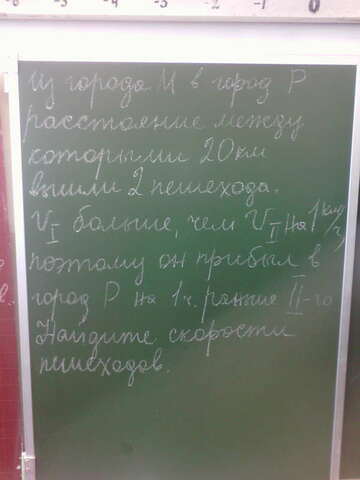 -5 -4 -3 -2 -1 0
Из города М в город Р
расстояние между
которыми 20 км
вышли 2 пешехода.
V_I больше, чем V_II на 1 км/ч,
поэтому он прибыл в
город Р на 1 ч. раньше II-го
Найдите скорости
пешеходов.